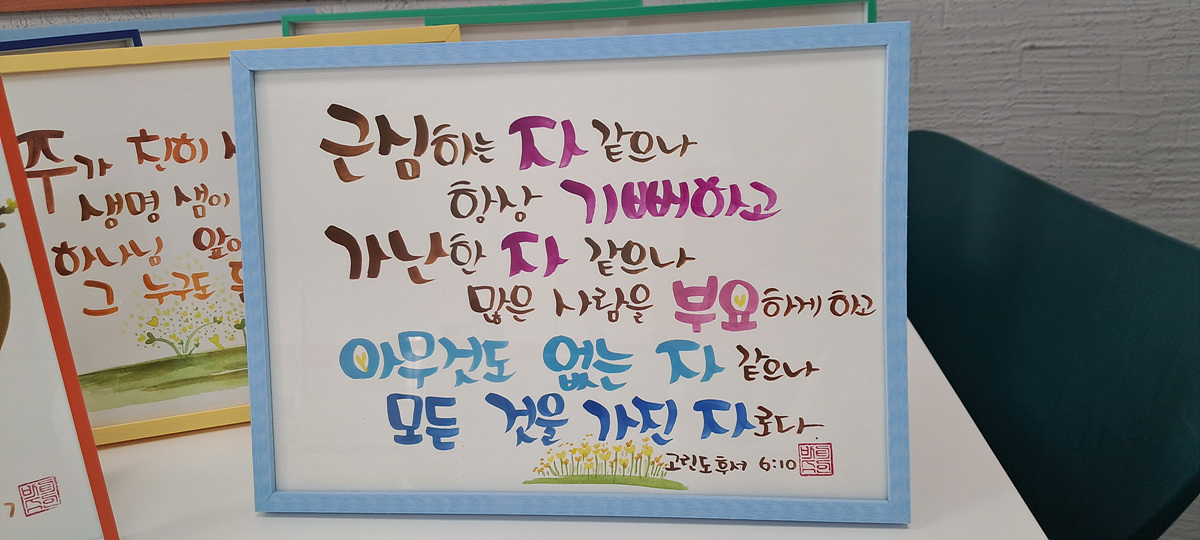 근심하는 자 같으나
항상 기뻐하고
가난한 자 같으나
많은 사람을 부요하게 하고
아무것도 없는 자 같으나
모든 것을 가진 자로다.
고린도후서 6:10
주가 친히
생명 샘이
하나님 앞에
그 누구도
기